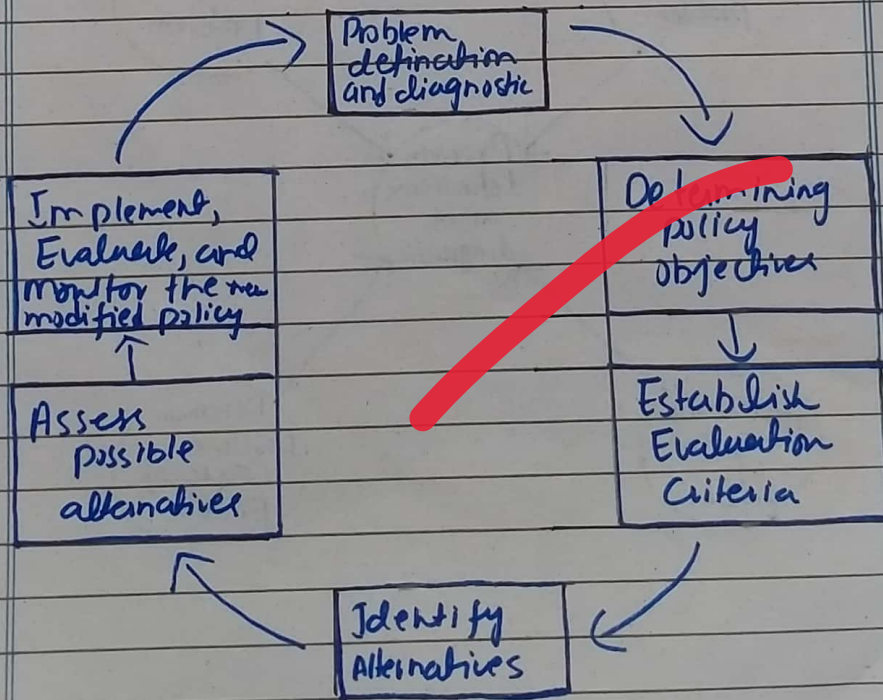 Problem
defination
and diagnostic
Determining
policy
objectives
Establish
Evaluation
Criteria
Identify
Alternatives
Assess
possible
alternatives
Implement,
Evaluate, and
monitor the
modified policy